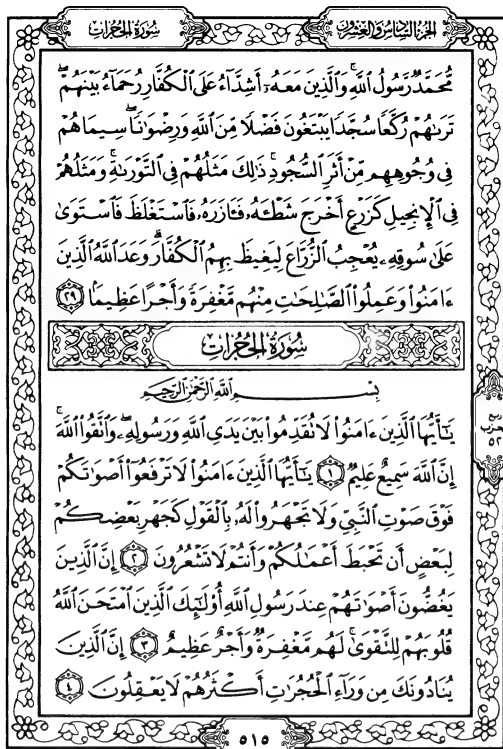 سُورَةُ الحُجُرَاتِ
الجُزْءُ السَّادِسُ وَالعِشْرُونَ
مُّحَمَّدٌ رَّسُولُ ٱللَّهِۚ وَٱلَّذِينَ مَعَهُۥٓ أَشِدَّآءُ عَلَى ٱلْكُفَّارِ رُحَمَآءُ بَيْنَهُمْۖ
تَرَىٰهُمْ رُكَّعًا سُجَّدًا يَبْتَغُونَ فَضْلًا مِّنَ ٱللَّهِ وَرِضْوَٰنًاۖ سِيمَاهُمْ
فِى وُجُوهِهِم مِّنْ أَثَرِ ٱلسُّجُودِۚ ذَٰلِكَ مَثَلُهُمْ فِى ٱلتَّوْرَىٰةِۚ وَمَثَلُهُمْ
فِى ٱلْإِنجِيلِ كَزَرْعٍ أَخْرَجَ شَطْـَٔهُۥ فَـَٔازَرَهُۥ فَٱسْتَغْلَظَ فَٱسْتَوَىٰ
عَلَىٰ سُوقِهِۦ يُعْجِبُ ٱلزُّرَّاعَ لِيَغِيظَ بِهِمُ ٱلْكُفَّارَۗ وَعَدَ ٱللَّهُ ٱلَّذِينَ
ءَامَنُوا۟ وَعَمِلُوا۟ ٱلصَّٰلِحَٰتِ مِنْهُم مَّغْفِرَةً وَأَجْرًا عَظِيمًۢا ٢٩
سُورَةُ الحُجُرَاتِ
بِسْمِ ٱللَّهِ ٱلرَّحْمَٰنِ ٱلرَّحِيمِ
يَٰٓأَيُّهَا ٱلَّذِينَ ءَامَنُوا۟ لَا تُقَدِّمُوا۟ بَيْنَ يَدَىِ ٱللَّهِ وَرَسُولِهِۦۖ وَٱتَّقُوا۟ ٱللَّهَۚ
إِنَّ ٱللَّهَ سَمِيعٌ عَلِيمٌ ١ يَٰٓأَيُّهَا ٱلَّذِينَ ءَامَنُوا۟ لَا تَرْفَعُوٓا۟ أَصْوَٰتَكُمْ
فَوْقَ صَوْتِ ٱلنَّبِىِّ وَلَا تَجْهَرُوا۟ لَهُۥ بِٱلْقَوْلِ كَجَهْرِ بَعْضِكُمْ
لِبَعْضٍ أَن تَحْبَطَ أَعْمَٰلُكُمْ وَأَنتُمْ لَا تَشْعُرُونَ ٢ إِنَّ ٱلَّذِينَ
يَغُضُّونَ أَصْوَٰتَهُمْ عِندَ رَسُولِ ٱللَّهِ أُو۟لَٰٓئِكَ ٱلَّذِينَ ٱمْتَحَنَ ٱللَّهُ
قُلُوبَهُمْ لِلتَّقْوَىٰۚ لَهُم مَّغْفِرَةٌ وَأَجْرٌ عَظِيمٌ ٣ إِنَّ ٱلَّذِينَ
يُنَادُونَكَ مِن وَرَآءِ ٱلْحُجُرَٰتِ أَكْثَرُهُمْ لَا يَعْقِلُونَ ٤
٥٢
٥١٥